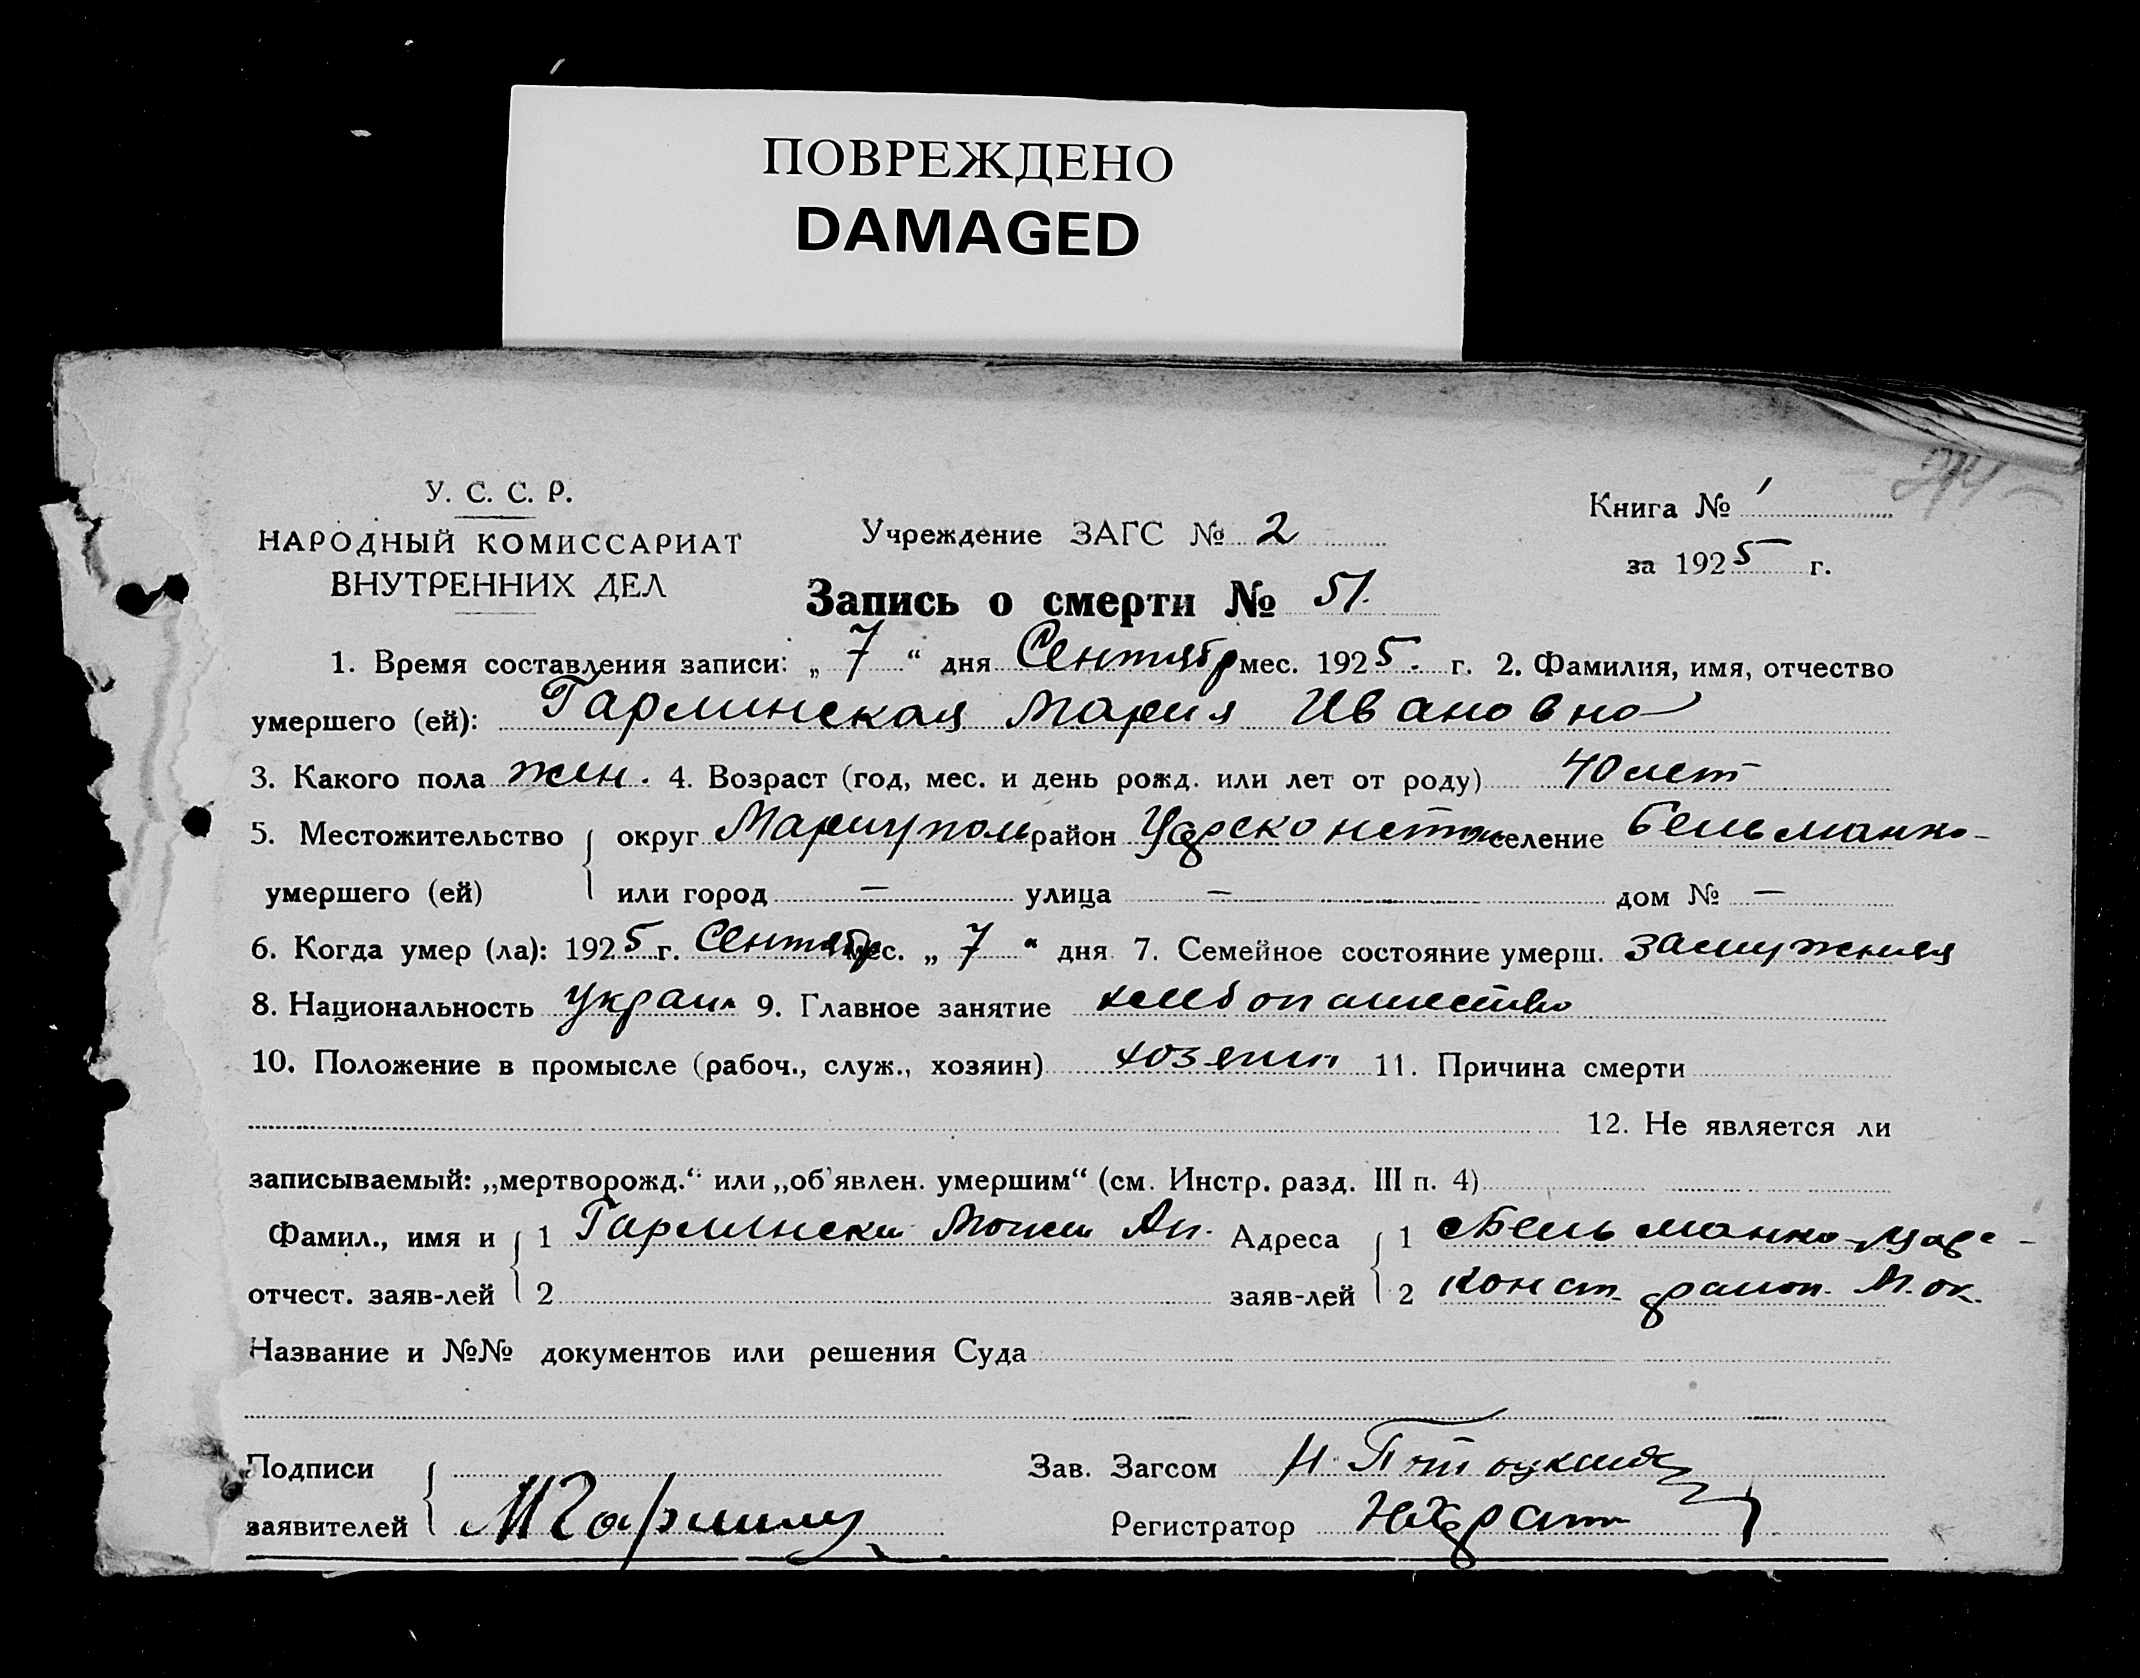 ПОВРЕЖДЕНО
DAMAGED
У. С. С. Р.
НАРОДНЫЙ КОМИССАРИАТ
ВНУТРЕННИХ ДЕЛ
Учреждение ЗАГС № 2
Книга № 1
за 1925 г.
Запись о смерти № 51.
1. Время составления записи: „7“ дня Сентябр мес. 1925. г. 2. Фамилия, имя, отчество
умершего (ей): Гарминская Мария Ивановно
3. Какого пола жен. 4. Возраст (год, мес. и день рожд. или лет от роду) 40 лет
5. Местожительство округ Мариуполь район селение Бельманко-
умершего (ей) или город — улица — дом № —
6. Когда умер (ла): 1925 г. Сентябр мес. „7“ дня 7. Семейное состояние умерш. замужняя
8. Национальность украин 9. Главное занятие хлебопашество
10. Положение в промысле (рабоч., служ., хозяин) хозяин 11. Причина смерти
12. Не является ли
записываемый: „мертворожд.“ или „об'явлен. умершим“ (см. Инстр. разд. III п. 4)
Фамил., имя и 1 Гармински Ан. Адреса 1 с Бельманко-Царе-
отчест. заяв-лей 2 заяв-лей 2 Конст. район. М. ок.
Название и №№ документов или решения Суда
Подписи Зав. Загсом
заявителей Регистратор